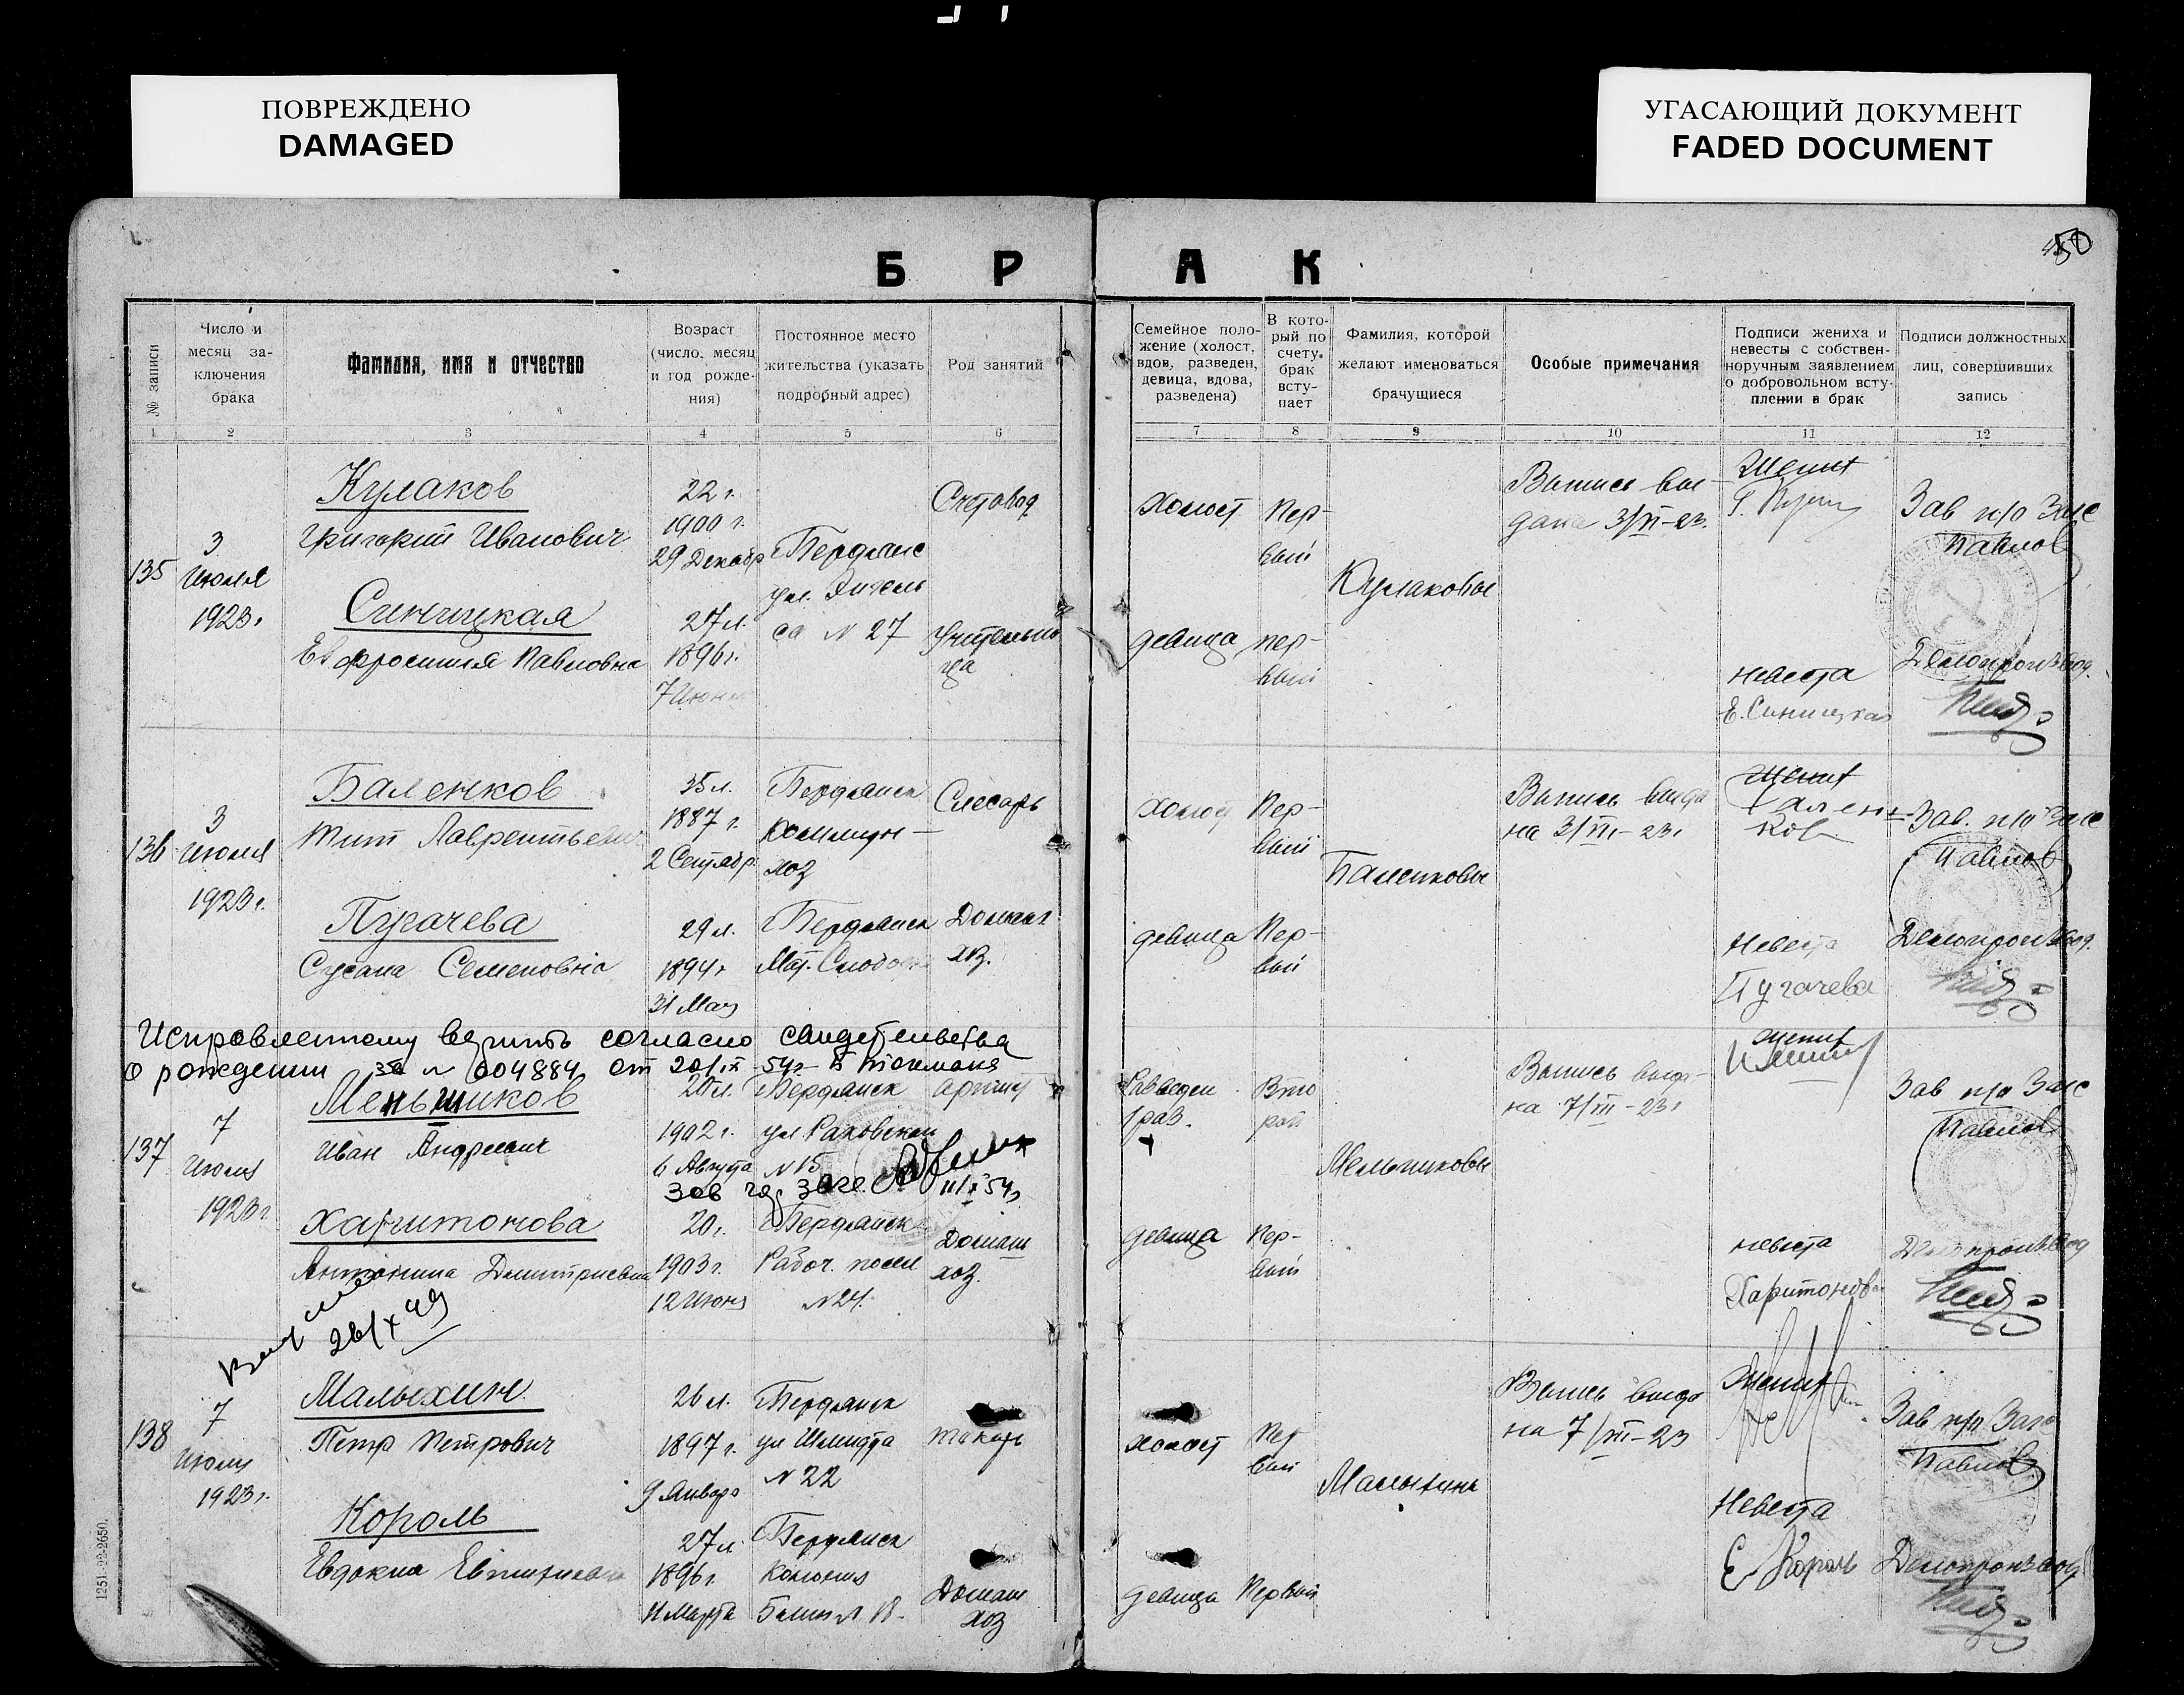 ПОВРЕЖДЕНО
DAMAGED
УГАСАЮЩИЙ ДОКУМЕНТ
FADED DOCUMENT
50
Б Р А К
№ записи
Число и месяц за-
ключения
брака
Фамилия, имя и отчество
Возраст
(число, месяц
и год рожде-
ния)
Постоянное место
жительства (указать
подробный адрес)
Род занятий
Семейное поло-
жение (холост,
вдов, разведен,
девица, вдова,
разведена)
В кото-
рый по
счету
брак
всту-
пает
Фамилия, которой
желают именоваться
брачущиеся
Особые примечания
Подписи жениха и
невесты с собствен-
норучным заявлением
о добровольном всту-
плении в брак
Подписи должностных
лиц, совершивших
запись
1 2 3 4 5 6 7 8 9 10 11 12
135
3
Июля
1923г.
Кулаков
Григорий Иванович
22 г.
1900 г.
29 Декабр
Бердянс
ул. Энгель
са N 27
Счетовод
Холост
Пер-
вый
Кулаковы
Выпись вы-
дана 3/VII-23.
Жених
Зав п/о Загс
Павлов
Синицкая
Евфросиния Павловна
27л.
1896г.
7 Июня
Учительни
ца
девица
пер-
вый
невеста
Е. Синицкая
Делопроизвод.
136
3
Июля
1923г.
Баленков
Тит Лаврентьевич
35л.
1887 г.
2 Сентябр
Бердянск
Коммун-
хоз
Слесарь
холост
Пер-
вый
Баленковы
Выпись выда
на 3/VII-23г
Жених
Бален-
ков
Зав. п/о Загс
Павлов
Пугачева
Сусана Семеновна
29л.
1894г
31 Мая
Бердянск
Мат. Слободк
Домашн
хоз.
девица
Пер-
вый
Невеста
Пугачева
Делопроизвод.
Исправленному верить согласно свидетельства
о рождении за N 004884 от 20/IX-54г Б Токмака
137
7
Июля
1923г
Меньшиков
Иван Андреевич
20л.
1902г.
6 Августа
Бердянск
ул. Раковской
N 15
Разведен
1 раз.
Вто
рой
Мельниковы
Выпись выда-
на 7/VII-23г
жених
Зав п/о Загс
Павлов
Зав гор загс
11/X 54г
Харитонова
Антонина Дмитриевна
20г.
1903г.
12 Июня
Бердянск
Рабоч. посел
N 24.
Домашн
хоз.
девица
Пер-
вый
невеста
Харитонова
Делопроизвод
26/X 49
138
7
Июля
1923г.
Малыхин
Петр Петрович
26л.
1897г.
9 Января
Бердянск
ул Шмидта
N 22
токарь
холост
Пер
вый
Малыхины
Выпись выда
на 7/VII-23
Жених
Зав п/о Загс
Павлов
Король
Евдокия
27л
1896г.
11 Марта
Бердянск
Колония
Домашн
хоз
девица
Первый
Невеста
Е Король
Делопроизвод
1251-22-2650.